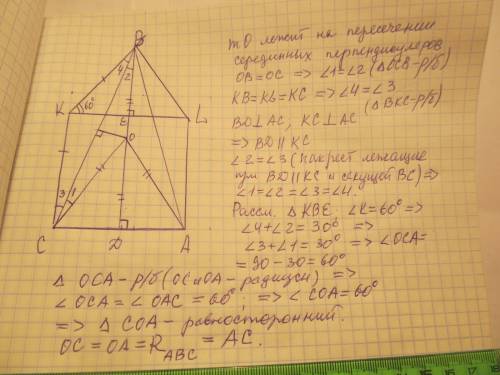 т.О лежит на пересечении
серединных перпендикуляров
OB = OC => ∠1=∠2 (△OCB-р/б)
KB=KL=KC => ∠4=∠3
(△BKC-р/б)
BD⊥AC, KC⊥AC
=> BD || KC
∠2=∠3 (накрест лежащие
при BD||KC и секущей BC) =>
∠1=∠2=∠3=∠4.
Рассм. △KBE, ∠K=60° =>
∠4+∠2 = 30° =>
∠3+∠1=30° => ∠OCA=
= 90-30=60°
△ OCA-р/б (OC и OA-радиусы) =>
∠OCA = ∠OAC = 60° => ∠COA=60°
=> △ COA- равносторонний.
OC = OA = R ABC = AC.
B
4
2
K
60°
E
L
O
3
1
C
D
A